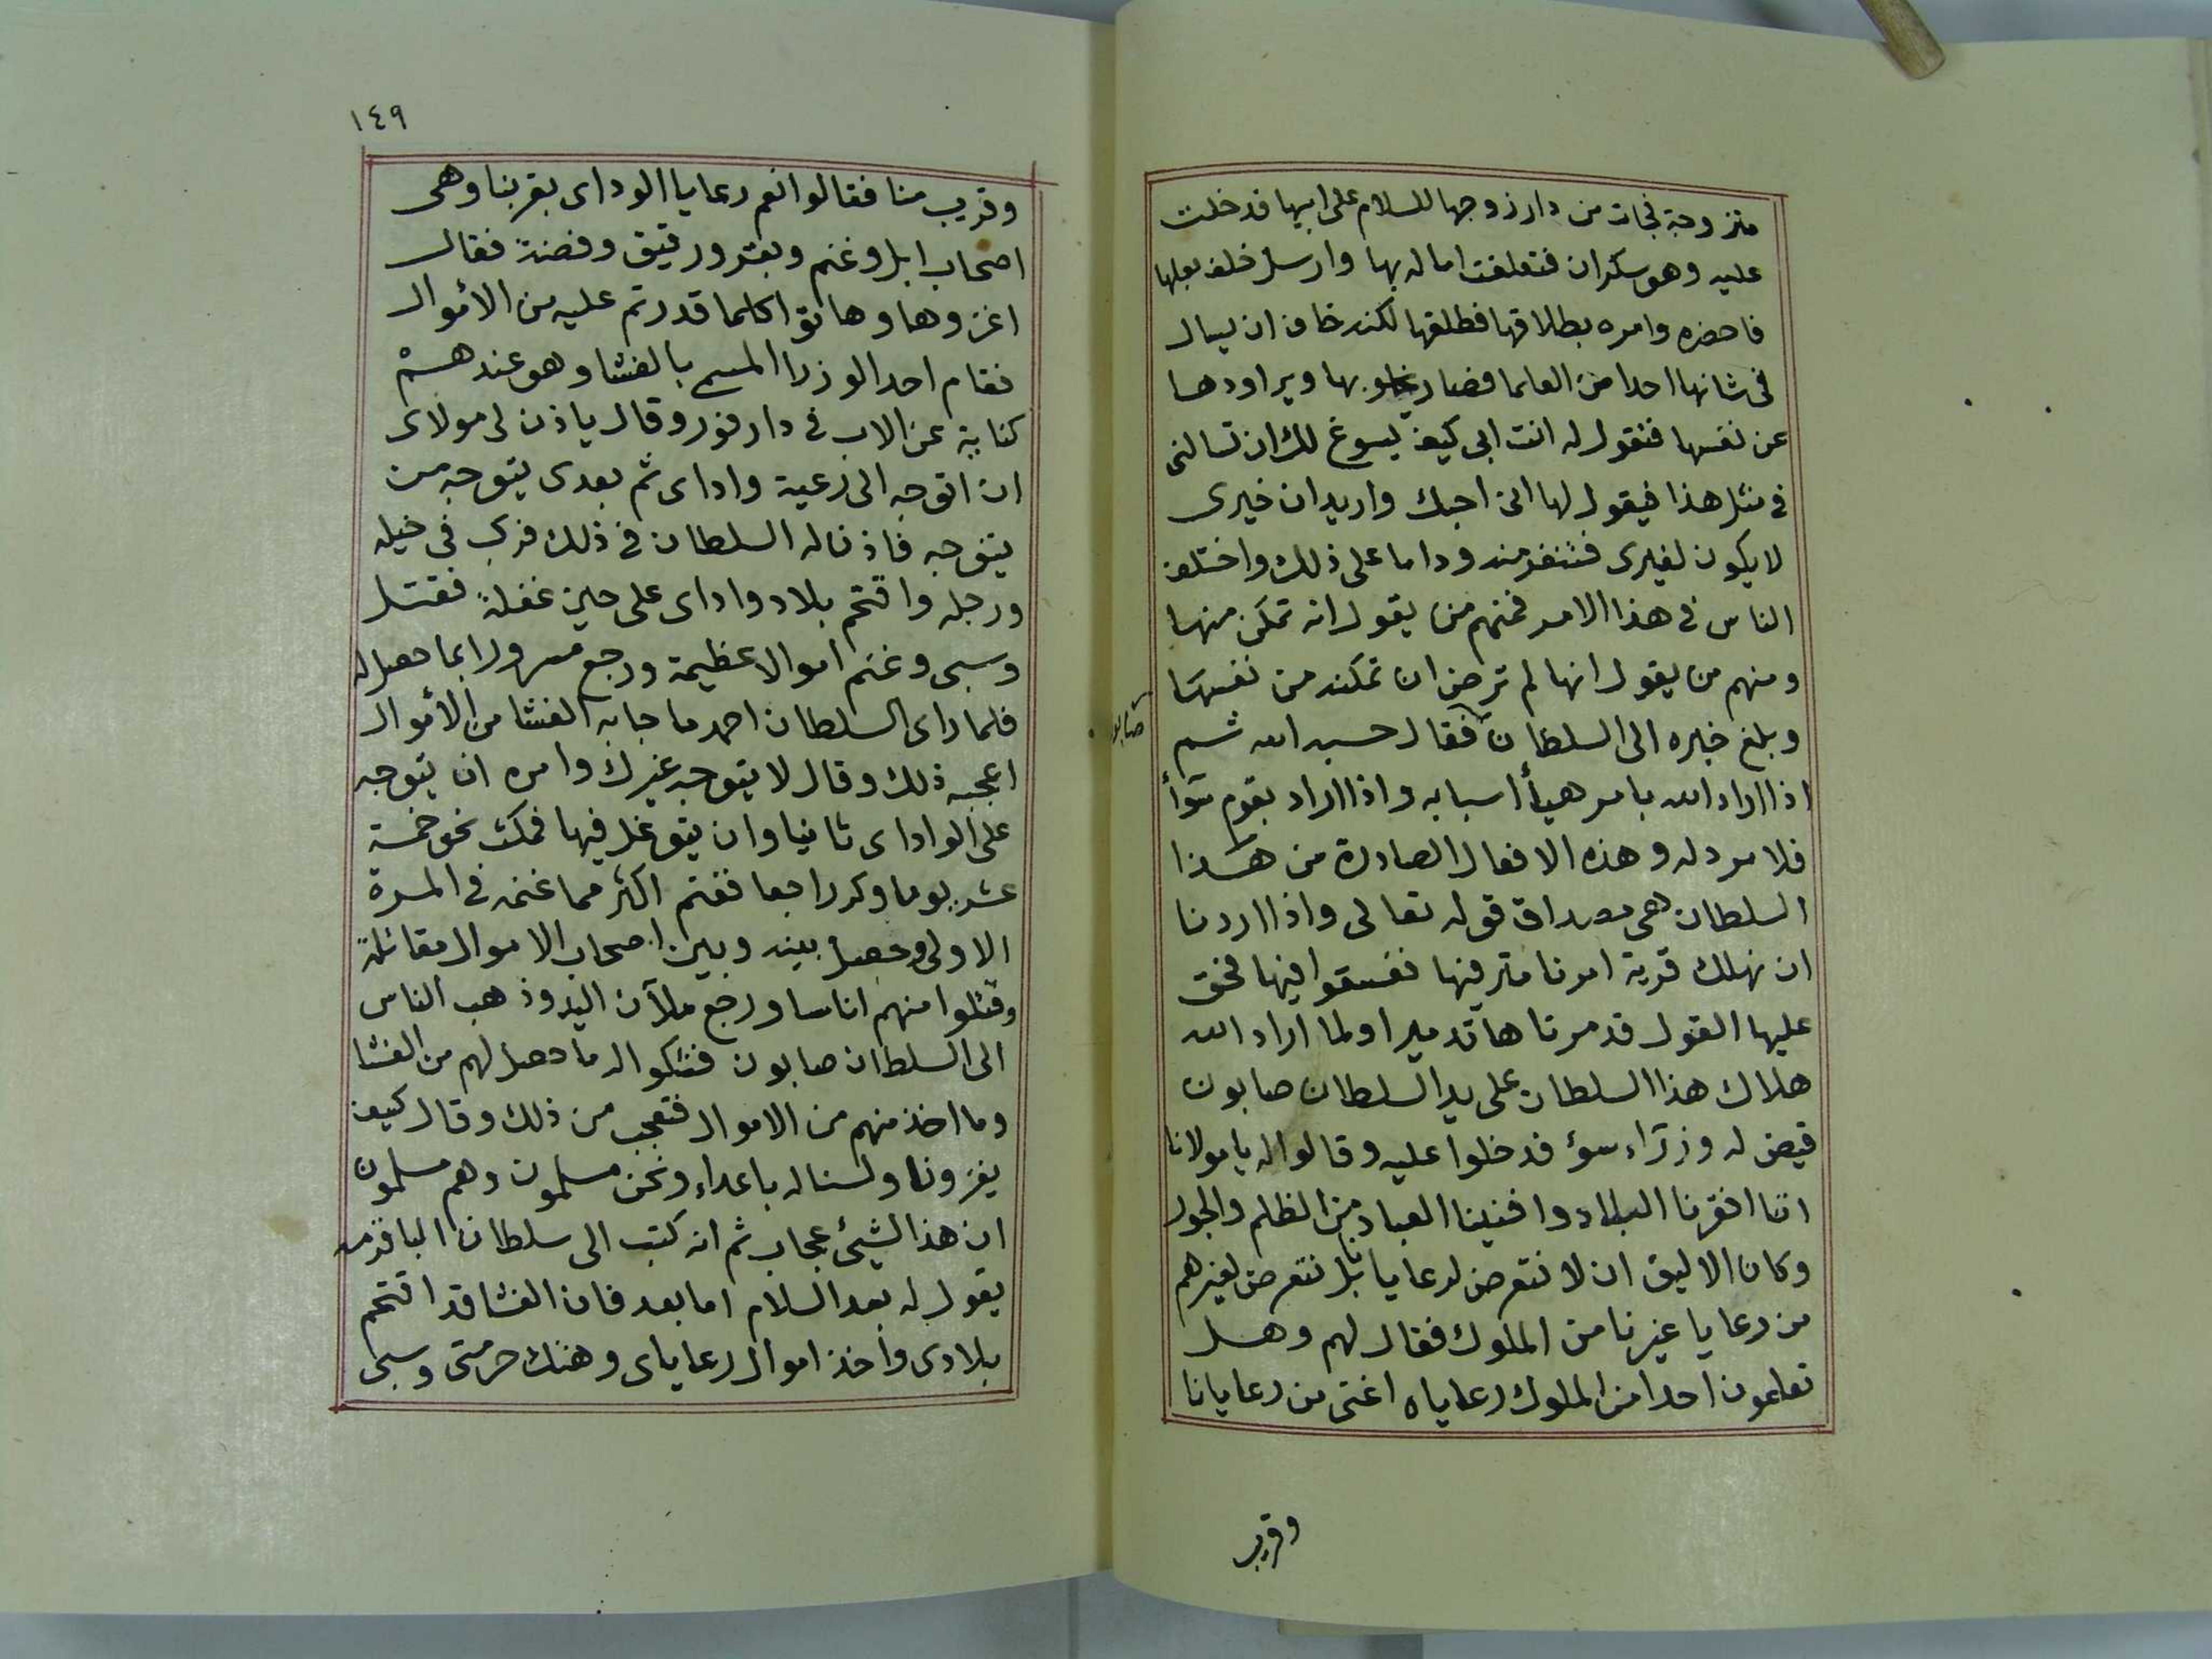 متزوجة فجات من دار زوجها للسلام على ابيها فدخلت
عليه وهو سكران فتعلقت اماله بها وارسل خلف بعلها
فاحضره وامره بطلاقها فطلقها لكنه خاف ان يسال
فى شانها احدا من العلما فصار يخلو بها ويراودها
عن نفسها فتقول له انت ابى كيف يسوغ لك ان تسالنى
فى مثل هذا فيقول لها انى احبك واريد ان خيرى
لا يكون لغيرى فتنفر منه وداما على ذلك واختلف
الناس فى هذا الامر فمنهم من يقول انه تمكن منها
ومنهم من يقول انها لم ترض ان تمكنه من نفسها
وبلغ خبره الى السلطان فقال حسبه الله ثم
صابون
اذا اراد الله بامر هيأ اسبابه واذا اراد بقوم سوأ
فلا مرد له وهذه الافعال الصادرة من هذا
السلطان هى مصداق قوله تعالى واذا اردنا
ان نهلك قرية امرنا مترفيها ففسقوا فيها فحق
عليها القول فدمرناها تدميرا ولما اراد الله
هلاك هذا السلطان على يد السلطان صابون
قيض له وزرآء سوء فدخلوا عليه وقالوا له يا مولانا
اننا افقرنا البلاد وافنينا العباد من الظلم والجور
وكان الاليق ان لا نتعرض لرعايانا بل نتعرض لغيرهم
من رعايا غيرنا من الملوك فقال لهم وهل
تعلمون احدا من الملوك رعاياه اغنى من رعايانا
وقريب
١٤٩
وقريب منا فقالوا نعم رعايا الوداى بقربنا وهى
اصحاب ابل وغنم وبقر ورقيق وفضة فقال
اغزوها وهاتوا كلما قدرتم عليه من الأموال
فقام احد الوزرا المسمى بالفشا وهو عندهم
كناية عن الاب فى دارفور وقال ياذن لى مولاى
ان اتوجه الى رعية واداى ثم بعدى يتوجه من
يتوجه فاذن له السلطان فى ذلك فركب فى خيله
ورجله واقتحم بلاد واداى على حين غفلة فقتل
وسبى وغنم اموالا عظيمة ورجع مسرورا بما حصل له
فلما راى السلطان احمد ما جا به الفشا من الأموال
اعجبه ذلك وقال لا يتوجه غيرك وامره ان يتوجه
على الواداى ثانيا وان يتوغل فيها فمكث نحو خمسة
عشر يوما وكر راجعا فغنم اكثر مما غنمه فى المرة
الاولى وحصل بينه وبين اصحاب الاموال مقاتلة
وقتلوا منهم اناسا ورجع ملآن اليد وذهب الناس
الى السلطان صابون فشكوا له ما حصل لهم من الفشا
وما اخذ منهم من الاموال فتعجب من ذلك وقال كيف
يغزونا ولسنا له باعداء ونحن مسلمون وهم مسلمون
ان هذا لشيئ عجاب ثم انه كتب الى سلطان الباقرمه
يقول له بعد السلام اما بعد فان الفشا قد اقتحم
بلادى واخذ اموال رعاياى وهتك حرمتى وسبى